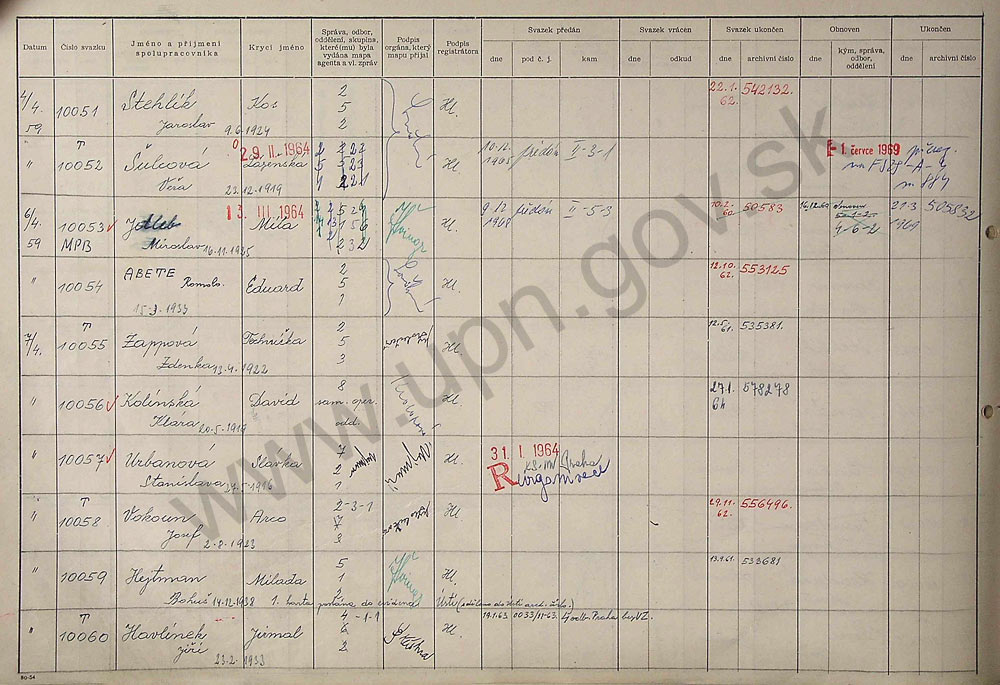 Datum
Číslo svazku
Jméno a příjmení spolupracovníka
Krycí jméno
Správa, odbor, oddělení, skupina, které(mu) byla vydána mapa agenta a vl. zpráv
Podpis orgána, který mapu přijal
Podpis registrátora
Svazek předán
dne
pod č. j.
kam
Svazek vrácen
dne
odkud
Svazek ukončen
dne
archivní číslo
Obnoven
dne
kým, správa, odbor, oddělení
Ukončen
dne
archivní číslo
4/4. 59
10051
Stehlík
Jaroslav 9.6.1924
Kos
2
5
2
Hl.
22.1. 62.
542132.
"
T
10052
Šulcová
Věra 23.12.1919
29. II. 1964
Lázeňská
Hl.
předán
II-3-1
1. července 1969
6/4. 59
10053
MPB
Miroslav 16.11.1935
13. III 1964
Míla
Hl.
9/12 1968
předán
II-5-3
10.2. 60.
50583
4-6-2
21.3 1969
505832
"
10054
ABETE
Romolo.
15.3.1933
Eduard
2
5
1
Hl.
12.10. 62.
553125
7/4.
T
10055
Zappová
Zdenka 13.4.1922
Technička
2
5
3
Hl.
12.5. 61.
535381.
"
10056
Kolínská
Klára 20.5.1919
David
8
sam. oper. odd.
Hl
27.1. 64
578278
"
10057
Urbanová
Stanislava 27.5.1916
Slávka
7
2
1
Hl.
31. I. 1964
R
KS-MV Praha
"
T
10058
Vokoun
Josef 2.8.1923
Arco
2-3-1
7
3
Hl
29.11. 62.
556496.
"
10059
Hejtman
Bohuš 14.12.1938
Milada
5
1
2
Hl.
13.9.61.
533681
1. karta poslána do evidence Ústí
"
T
10060
Havlínek
Jiří
23.2.1933
Jirmal
4-1-1
6
2
Hl.
19.1.63
0033/11-63.
odb. Praha
80-54
www.upn.gov.sk